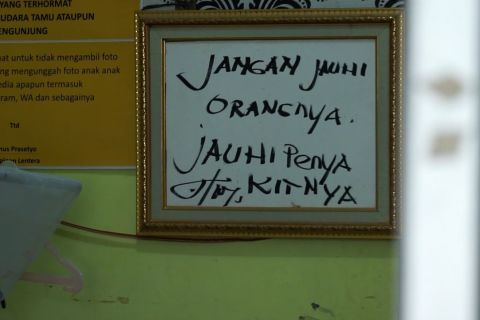 YANG TERHORMAT
UDARA TAMU ATAUPUN
ENGUNJUNG
at untuk tidak mengambil foto
ng mengunggah foto anak anak
edia apapun termasuk
ram, WA dan sebagainya
Ttd
nus Prasetyo
Lentera
JANGAN JAUHI
ORANGNYA.
JAUHI PENYA
KITNYA